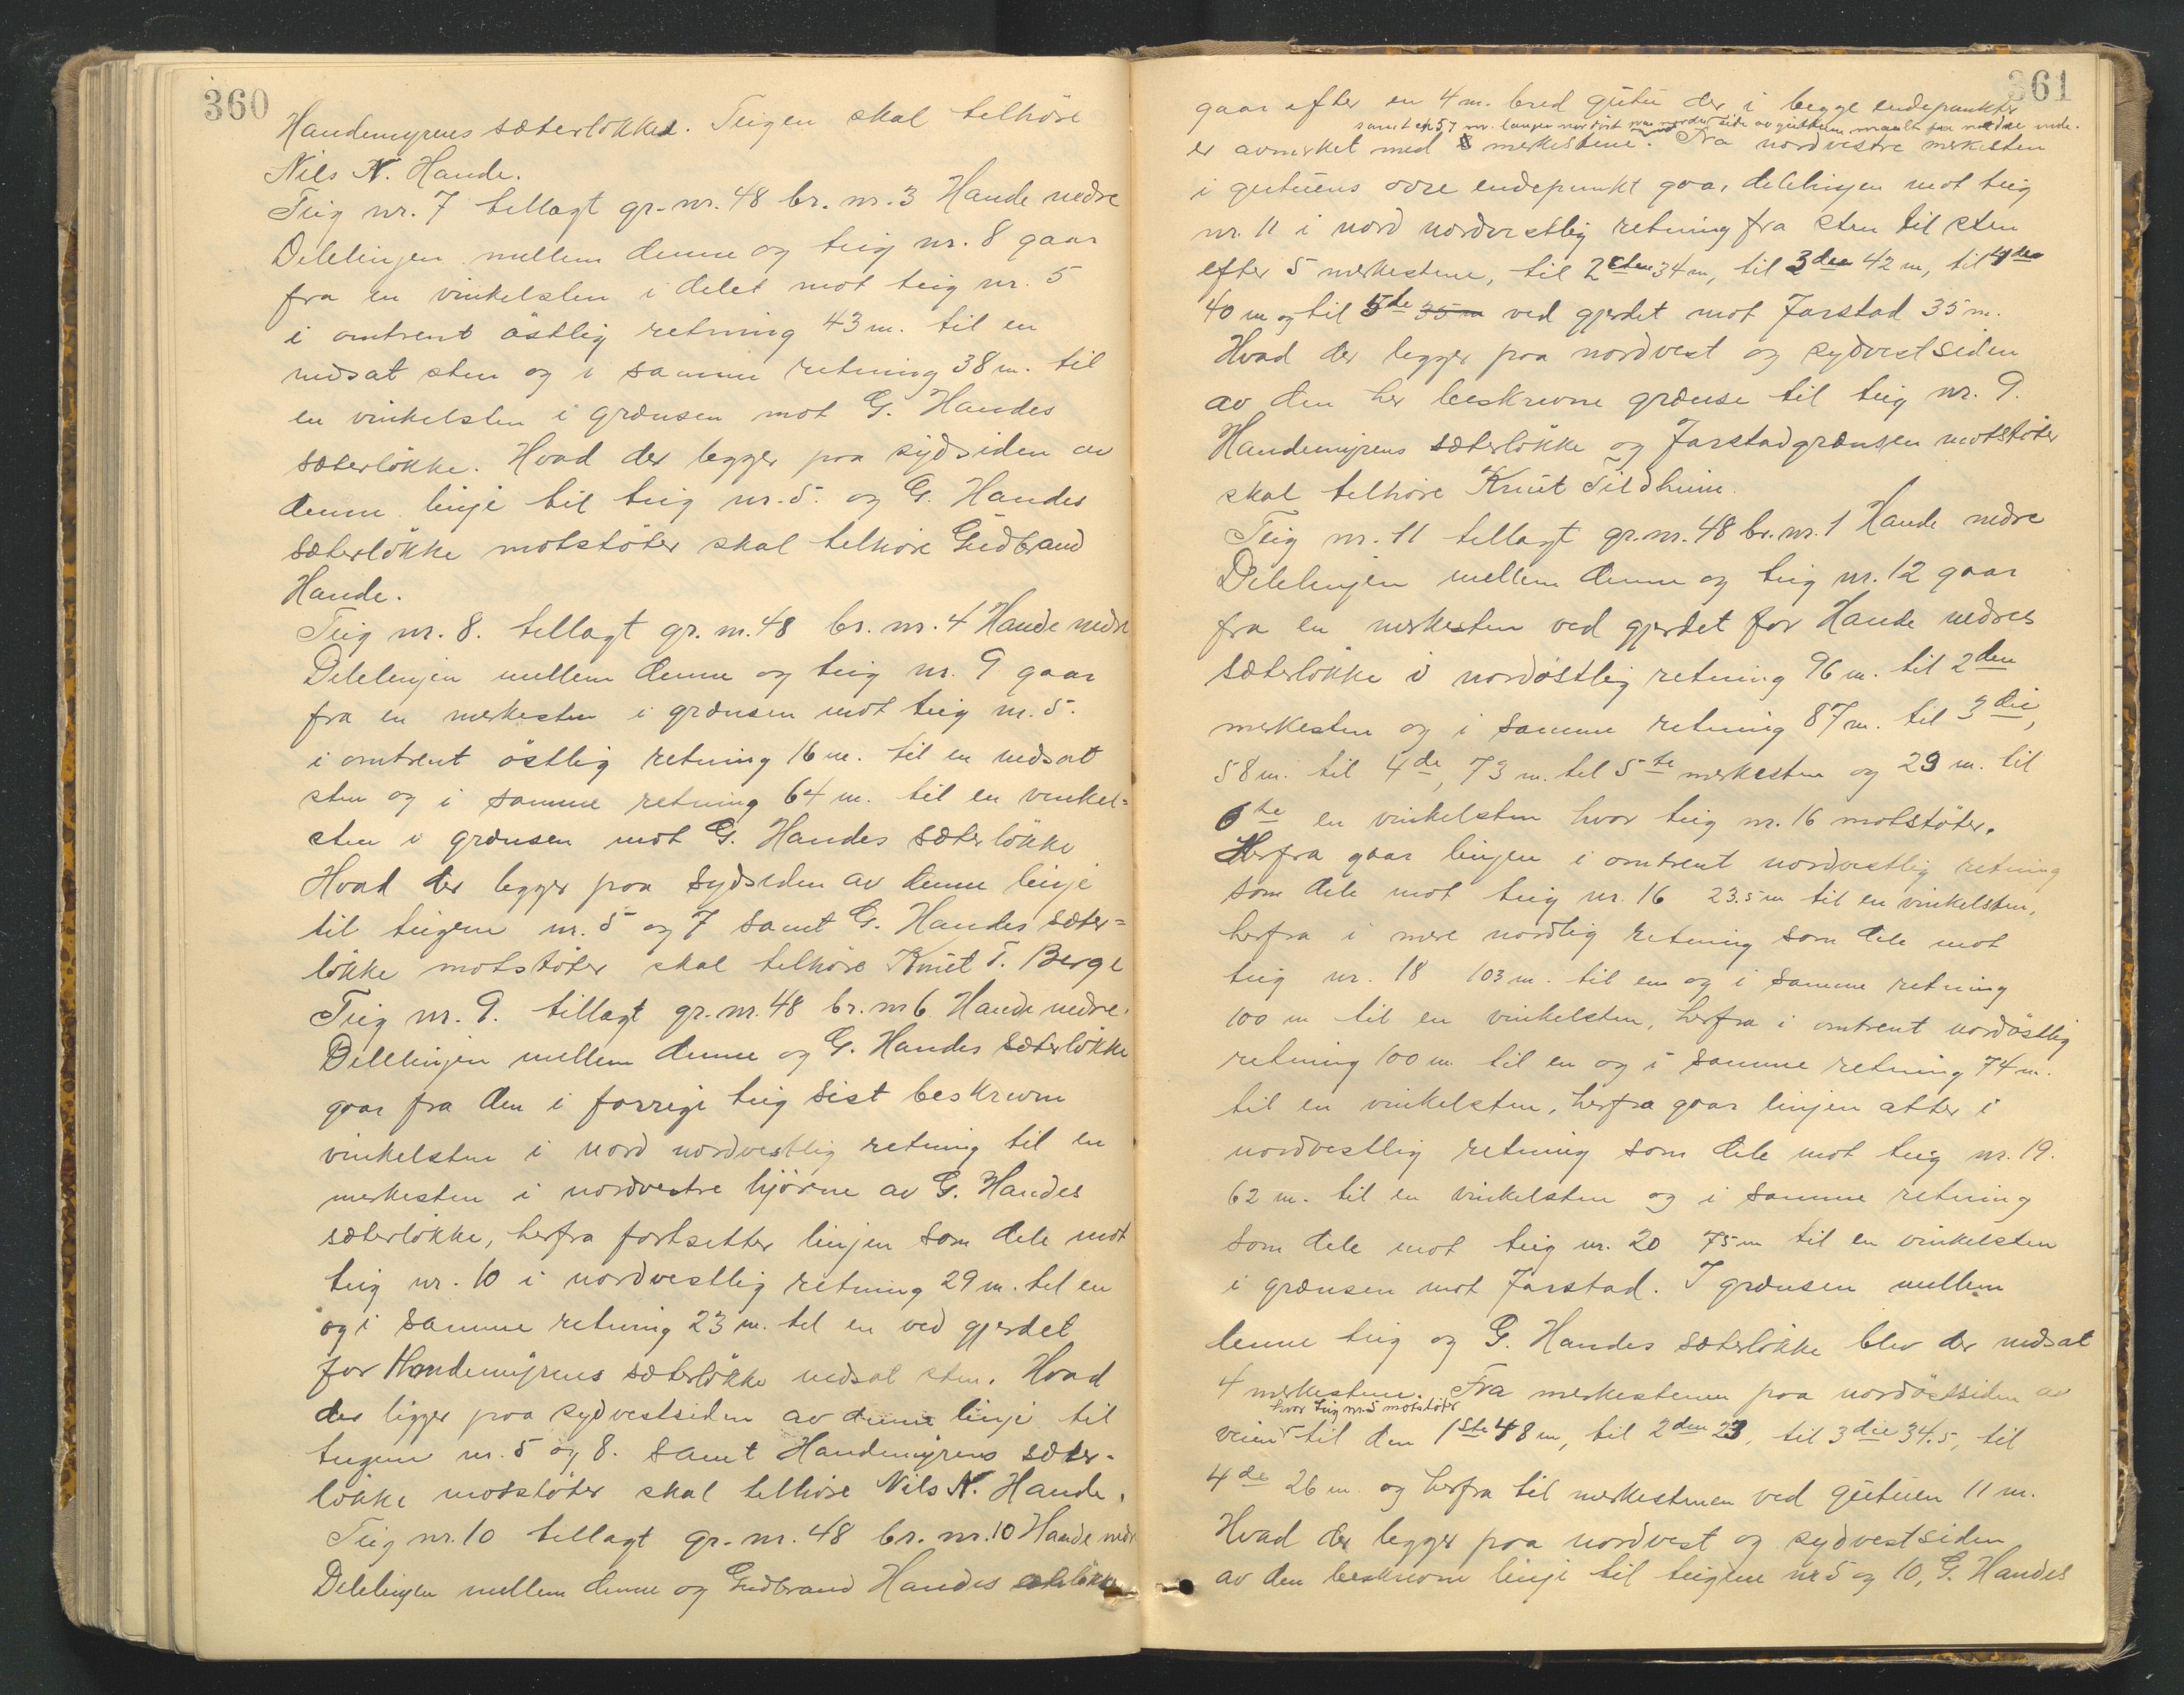 360
Handemyrens sæterløkke. Teigen skal tilhöre
Nils N. Hande.
Teig nr. 7 tillagt gr. nr. 48 br. nr. 3 Hande nedre
Delelinjen mellem denne og teig nr. 8 gaar
fra en vinkelsten i delet mot teig nr. 5
i omtrent östlig retning 43 m. til en
nedsat sten og i samme retning 38 m. til
en vinkelsten i grænsen mot G. Handes
sæterlökke. Hvad der legger paa sydsiden av
denne linje til teig nr. 5. og G. Handes
sæterlökke motstöter skal tilhöre Gudbrand
Hande.
Teig nr. 8. tillagt gr. nr. 48 br. nr. 4 Hande nedre
Delelinjen mellem denne og teig nr. 9 gaar
fra en merkesten i grænsen mot teig nr. 5.
i omtrent östlig retning 16 m. til en nedsat
sten og i samme retning 64 m. til en vinkel=
sten i grænsen mot G. Handes sæterlökke
Hvad der legger paa sydsiden av denne linje
til teigene nr. 5 og 7 samt G. Handes sæter=
lökke motstöter skal tilhöre Knut T. Berge
Teig nr. 9. tillagt gr. nr. 48 br. nr 6 Hande nedre.
Delelinjen mellem denne og G. Handes sæterlökke
gaar fra den i forrige teig sist beskrevne
vinkelsten i nord nordvestlig retning til en
merkesten i nordvestre hjörne av G. Handes
sæterlökke, herfra fortsetter linjen som dele mot
teig nr. 10 i nordvestlig retning 29 m. til en
og i samme retning 23 m. til en ved gjerdet
for Handemyrens sæterlökke nedsat sten. Hvad
der ligger paa sydvestsiden av denne linje til
teigene nr. 5 og 8. samt Handemyrens sæter-
lökke motstöter skal tilhöre Nils N. Hande.
Teig nr. 10 tillagt gr. nr. 48 br. nr. 10 Hande nedr
Delelinjen mellem denne og Gudbrand Handes sæterlökke
361
gaar efter en 4 m. bred gutu der i begge endepunkter
samt 57 m. langs nordöst side av gutuen maalt fra nedre ende.
er avmerket med merkestene. Fra nordvestre merkesten
i gutuens övre endepunkt gaar delelinjen mot teig
nr. 11 i nord nordvestlig retning fra sten til sten
efter 5 merkestene, til 2den 34 m, til 3die 42 m, til 4de
40 m og til 5te 35 m ved gjerdet mot Jarstad 35 m.
Hvad der legger paa nordvest og sydvestsiden
av den her beskrevne grænse til teig nr. 9.
Handemyrens sæterlökke og Jarstadgrænsen motstöter
skal tilhöre Knut Tildheim.
Teig nr. 11 tillagt gr. nr. 48 br. nr. 1 Hande nedre
Delelinjen mellem denne og teig nr. 12 gaar
fra en merkesten ved gjerdet for Hande nedres
sæterlökke i nordöstlig retning 96 m. til 2den
merkesten og i samme retning 87 m. til 3die,
58 m. til 4de, 73 m. til 5te merkesten og 29 m. til
6te en vinkelsten hvor teig nr. 16 motstöter.
Herfra gaar linjen i omtrent nordvestlig retning
som dele mot teig nr. 16 23.5 m til en vinkelsten,
herfra i mere nordlig retning som dele mot
teig nr. 18 103 m. til en og i samme retning
100 m til en vinkelsten, herfra i omtrent nordöstlig
retning 100 m til en og i samme retning 74 m.
til en vinkelsten, herfra gaar linjen atter i
nordvestlig retning som dele mot teig nr. 19.
62 m. til en vinkelsten og i samme retning
som dele mot teig nr. 20 75 m til en vinkelsten
i grænsen mot Jarstad. I grænsen mellem
denne teig og G. Handes sæterlökke blev der nedsat
4 merkestene. Fra merkestenen paa nordöstsiden av
hvor teig nr. 5 motstöter
veien til den 1ste 48 m, til 2den 23, til 3die 34.5, til
4de 26 m. og herfra til merkestenen ved gutuen 11 m.
Hvad der legger paa nordvest og sydvestsiden
av den beskrevne linje til teigene nr 5 og 10, G. Handes